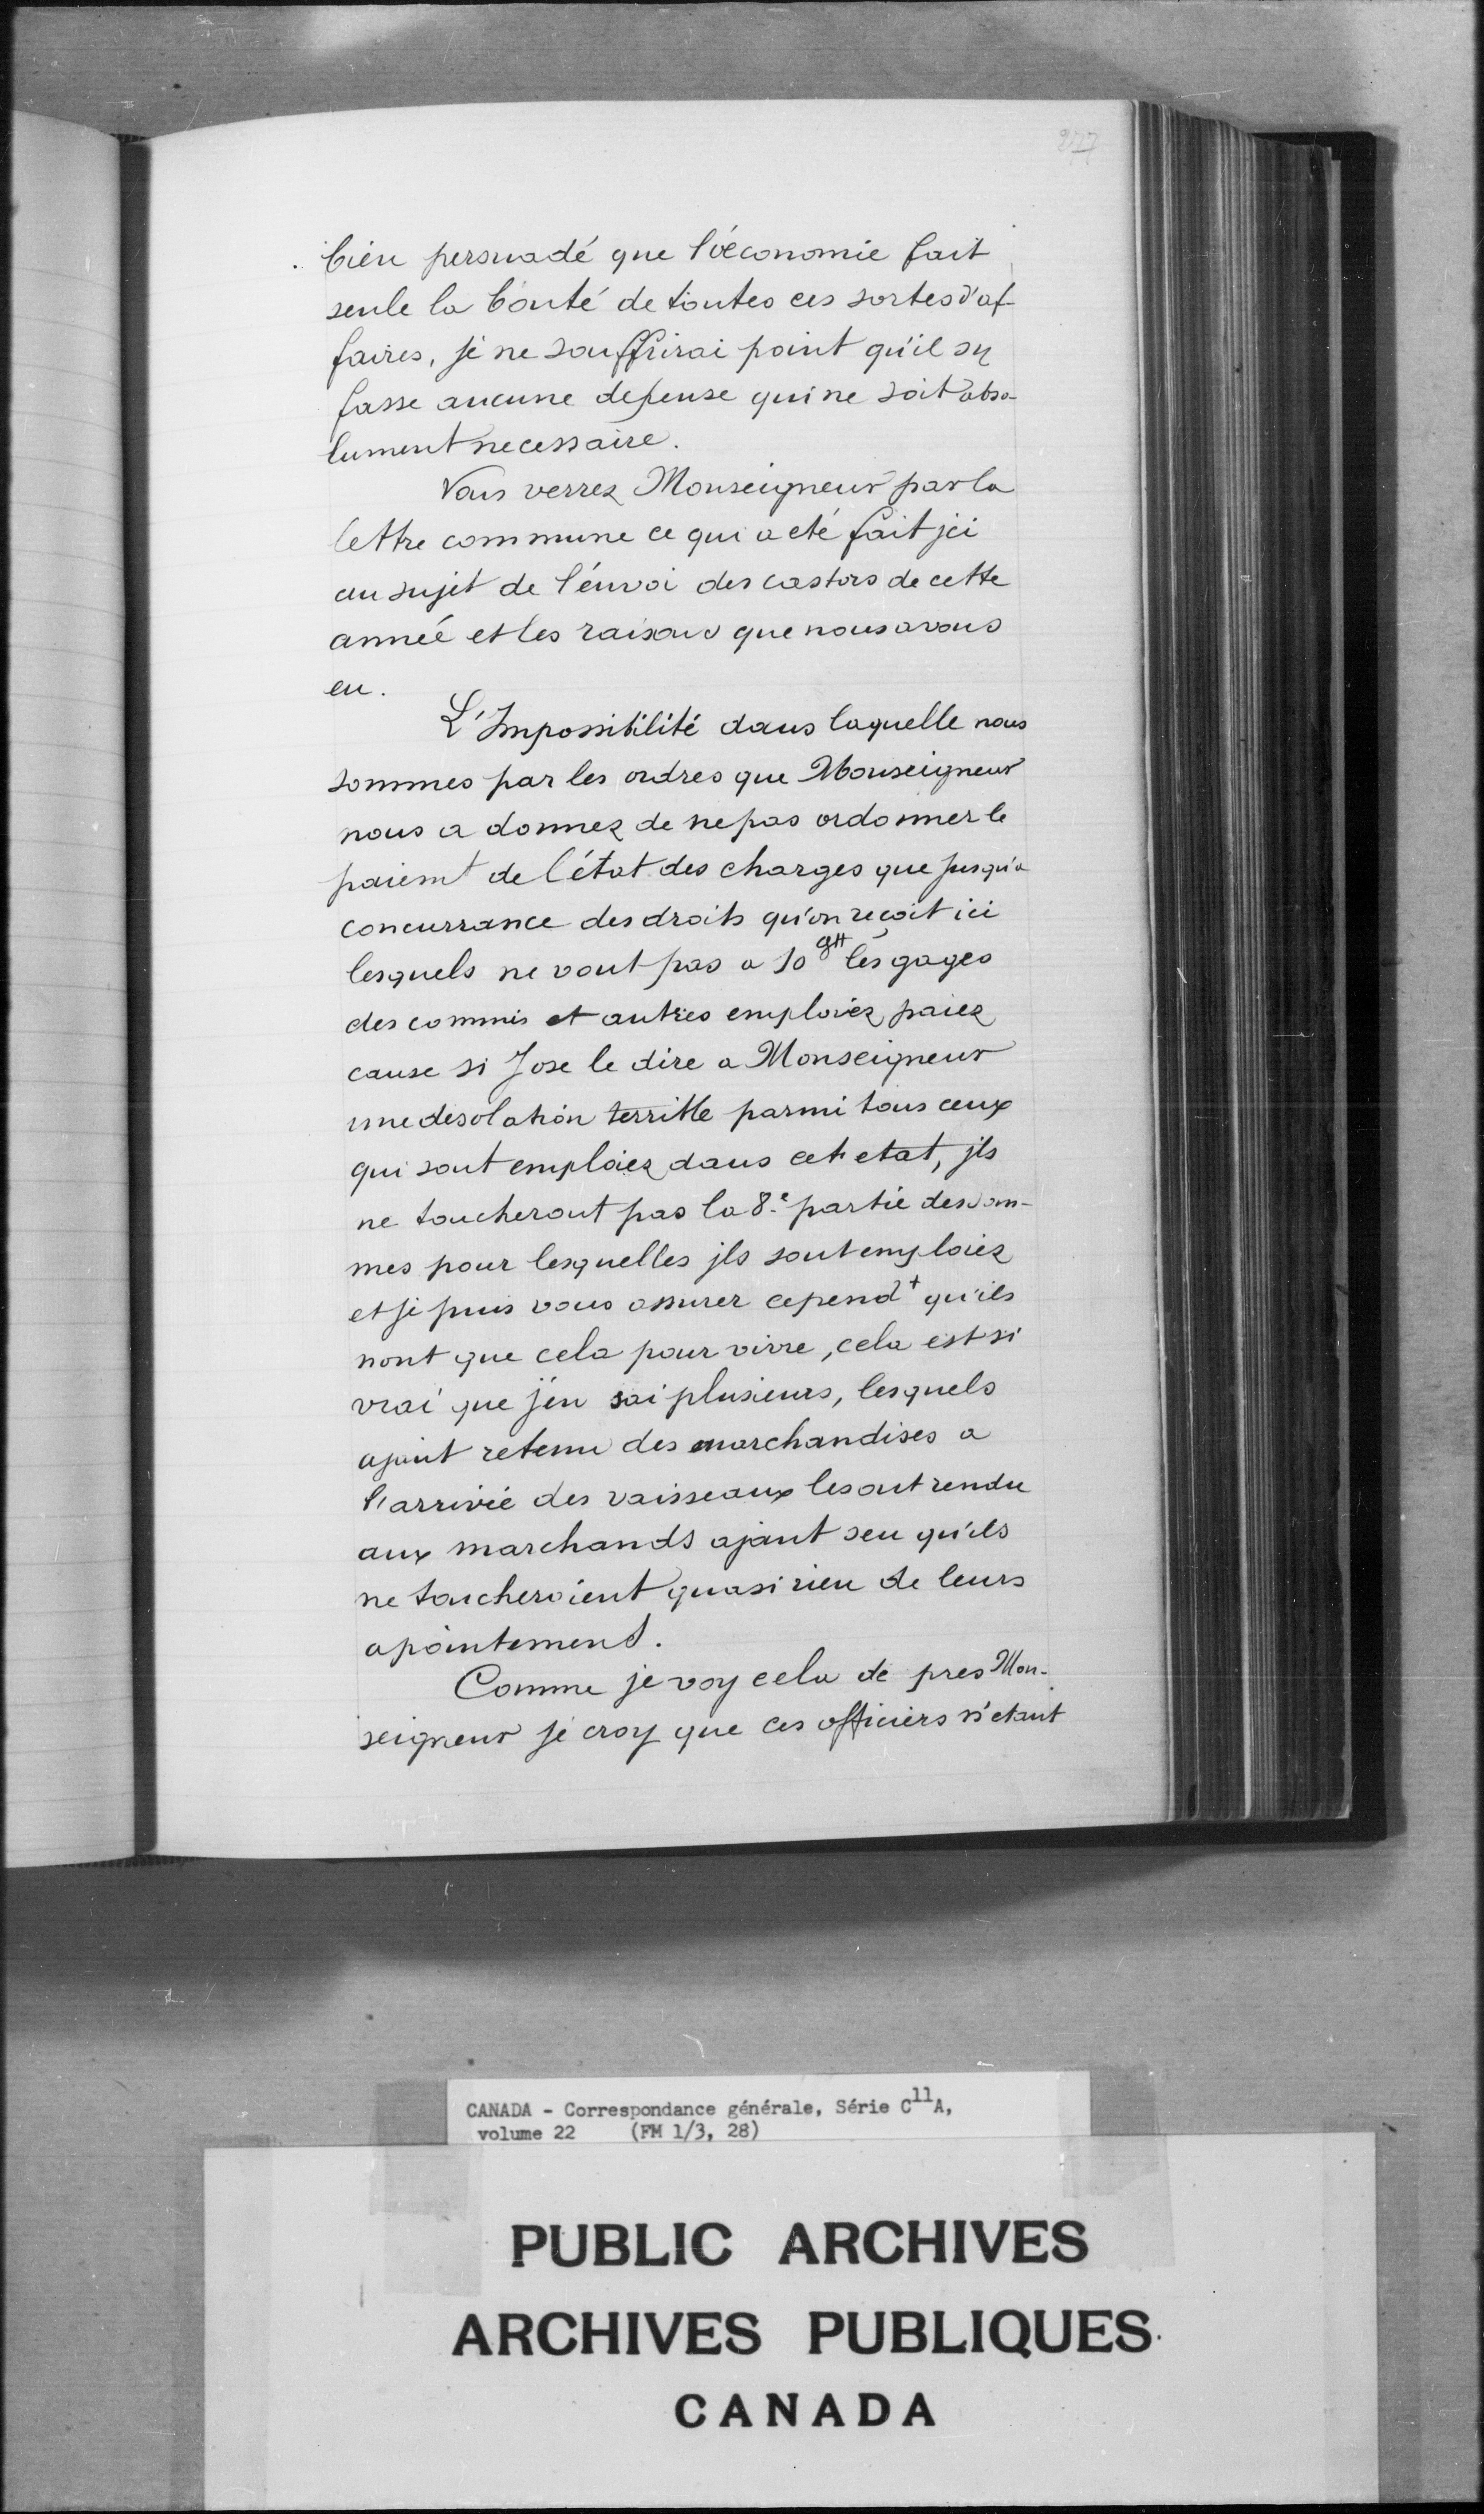 277
bien persuadé que l'œconomie fait
seule la bonté de toutes ces sortes d'af-
faires, je ne souffrirai point qu'il sy
fasse aucune depense qui ne soit abso-
lument necessaire.
Vous verrez Monseigneur par la
lettre commune ce qui a eté fait jci
au sujet de l'énvoi des castors de cette
année et les raisons que nous avons
eu.
L'Impossibilité dans laquelle nous
sommes par les ordres que Monseigneur
nous a donnez de ne pas ordonner le
paiemt de l'état des charges que jusqu'a
concurrance des droits qu'on reçoit ici
lesquels ne vont pas a 10 les gages
des commis et autres emploiez paiez
cause si Jose le dire a Monseigneur
une desolation terrible parmi tous ceux
qui sont emploiez dans cet etat, jls
ne toucheront pas la 8e partie des som-
mes pour lesquelles jls sont emploiez
et je puis vous assurer cependt qu'ils
nont que cela pour vivre, cela est si
vrai que j'en sai plusieurs, lesquels
ajant retenu des marchandises a
l'arrivée des vaisseaux les ont rendu
aux marchands ajant seu qu'ils
ne toucheroient quasi rien de leurs
apointement.
Comme je voy cela de pres Mon-
seigneur je croy que ces officiers n'etant
CANADA - Correspondance générale, Série C11A,
volume 22 (FM 1/3, 28)
PUBLIC ARCHIVES
ARCHIVES PUBLIQUES
CANADA